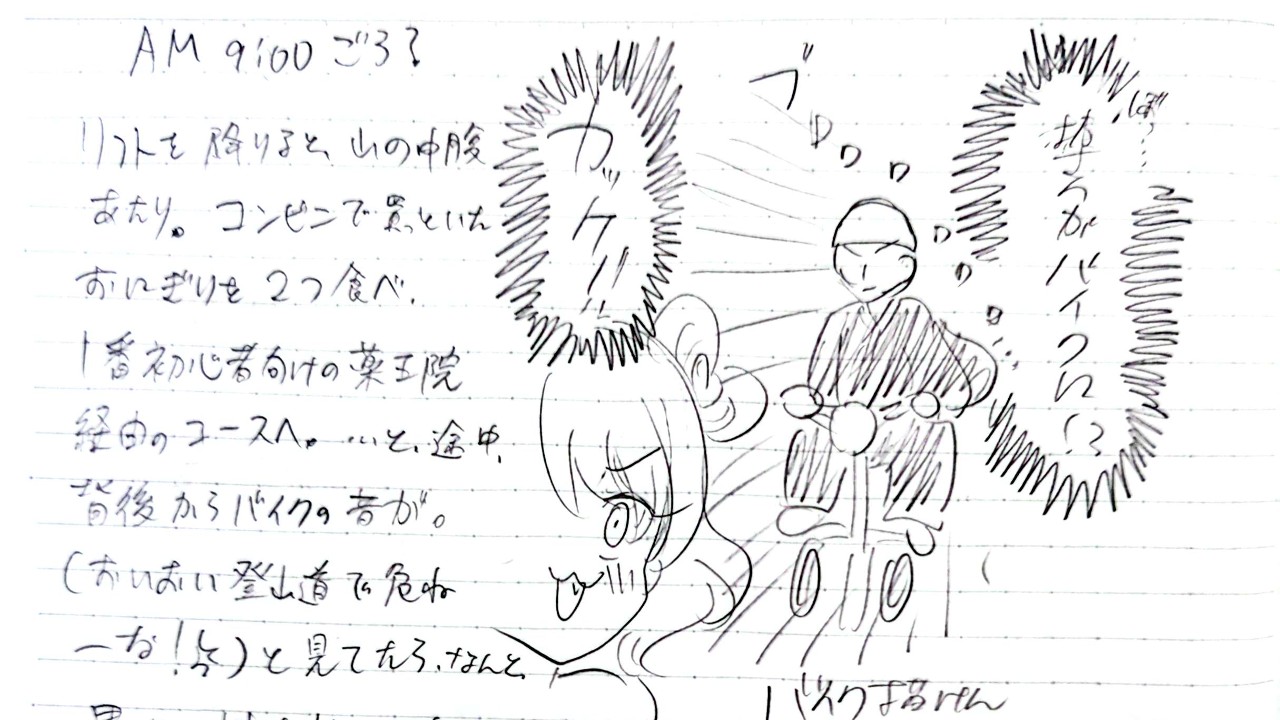 AM 9:00 ごろ?
リフトを降りると、山の中腹
あたり。コンビニで買っといた
おにぎりを2つ食べ、
1番初心者向けの薬王院
経由のコースへ。…と、途中、
背後からバイクの音が。
(おいおい登山道で危ね
ーな!)と見てたら、なんと、
カッケー!!
ブロロロロロ
ぼっ…
坊さんがバイクに!?